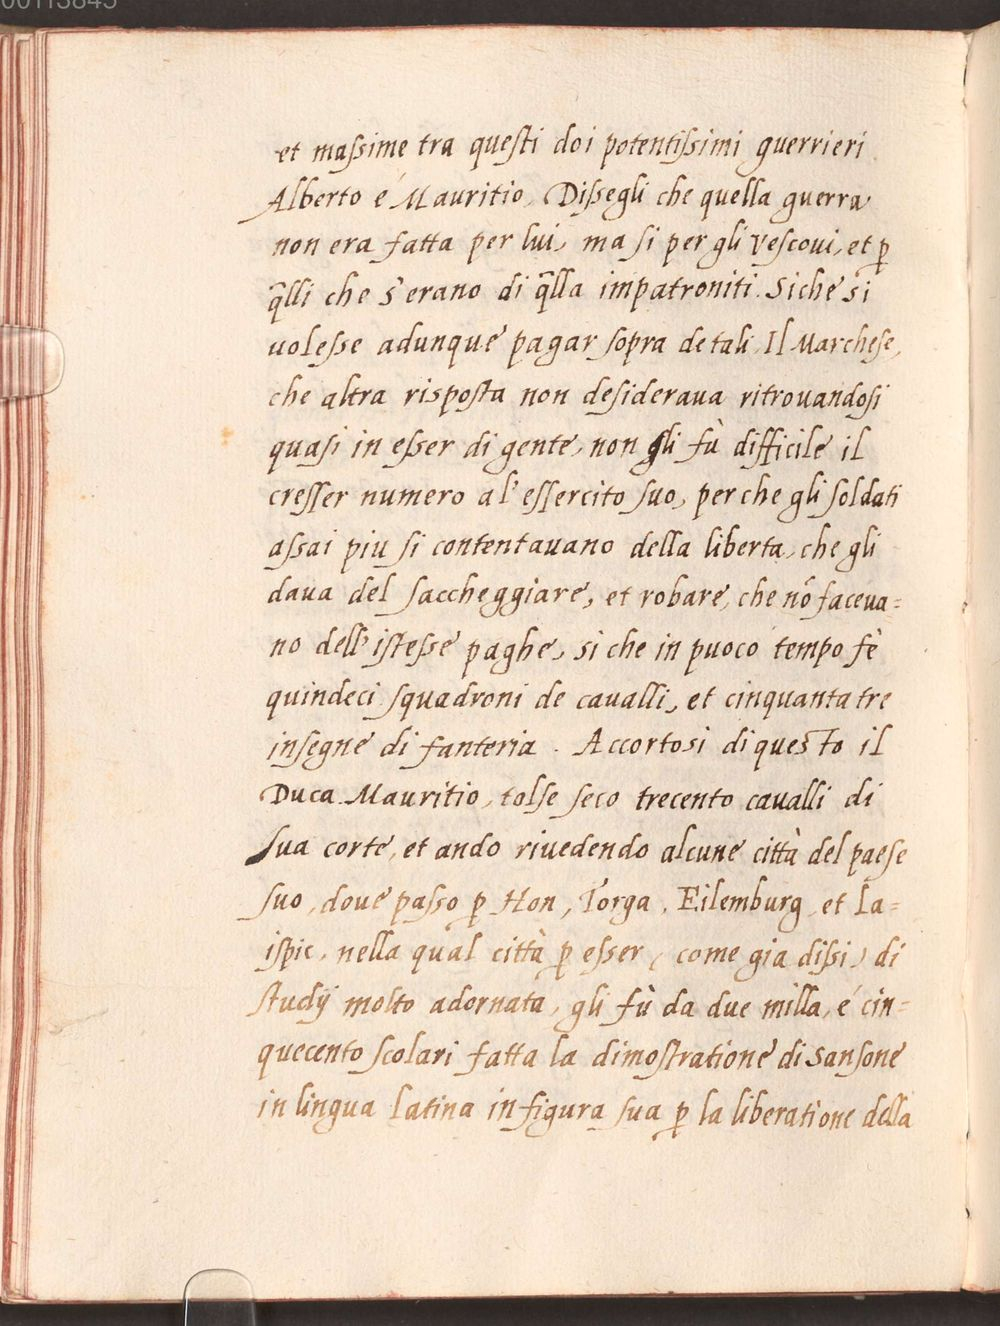 00113843
et maſsime tra queſti doi potentiſsimi guerrieri
Alberto é Mauritio, Diſsegli che quella guerra
non era fatta per lui, ma ſi per gli veſcoui, et ꝑ
q̃lli che s'erano di q̃lla impatroniti. Siche si
uoleſse adunque pagar ſopra de tali, Il Marcheſe,
che altra riſpoſta non deſideraua ritrouandoſi
quaſi in eſser di gente, non gli fù difficile il
creſſer numero al'eſſercito ſuo, perche gli ſoldati
aſsai piu ſi contentauano della liberta, che gli
daua del ſaccheggiare, et robare, che nõ faceua=
no dell'iſteſse paghe, si che in puoco tempo fè
quindeci ſquadroni de caualli, et cinquanta tre
inſegne di fanteria. Accortosi di questo il
Duca Mauritio, tolſe ſeco trecento caualli di
ſua corte, et ando riuedendo alcune città del paeſe
ſuo, doue paſso ꝑ Hon, Torga, Eilemburg, et La=
iſpic, nella qual città ꝑ eſser (come gia diſsi) di
ſtudÿ molto adornata, gli fù da due milla, é cin=
quecento ſcolari fatta la dimoſtratione di Sanſone
in lingua latina in figura ſua ꝑ la liberatione della